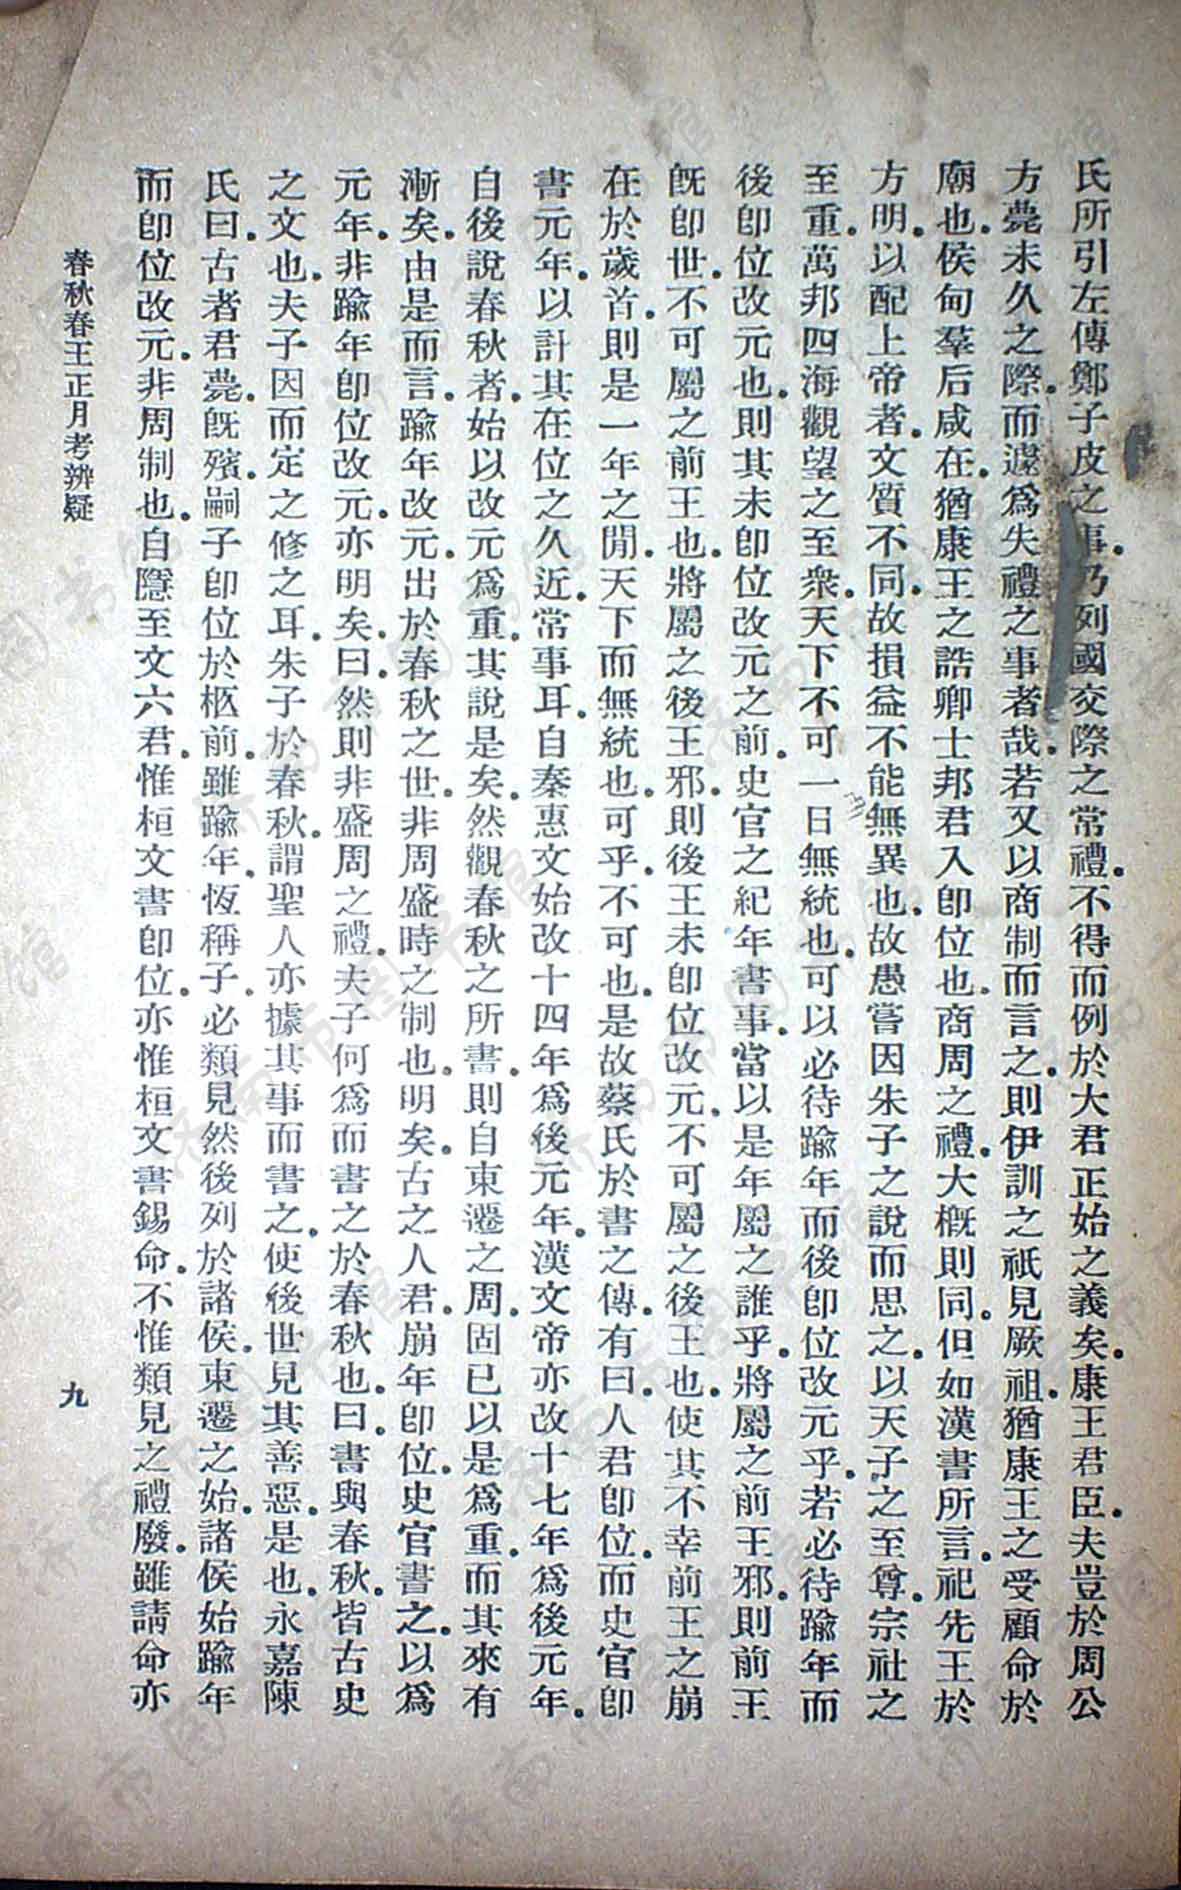 氏所引左傳鄭子皮之事。乃列國交際之常禮。不得而例於大君正始之義矣。康王君臣。夫豈於周公
方薨未久之際。而遽爲失禮之事者哉。若又以商制而言之。則伊訓之祇見厥祖。猶康王之受顧命於
廟也。侯甸羣后咸在。猶康王之誥卿士邦君入卽位也。商周之禮。大槪則同。但如漢書所言。祀先王於
方明。以配上帝者。文質不同。故損益不能無異也。故愚嘗因朱子之說而思之。以天子之至尊。宗社之
至重。萬邦四海觀望之至衆。天下不可一日無統也。可以必待踰年而後卽位改元乎。若必待踰年而
後卽位改元也。則其未卽位改元之前。史官之紀年書事。當以是年屬之誰乎。將屬之前王邪。則前王
旣卽世。不可屬之前王也。將屬之後王邪。則後王未卽位改元。不可屬之後王也。使其不幸前王之崩
在於歲首。則是一年之閒。天下而無統也。可乎。不可也。是故蔡氏於書之傳。有曰。人君卽位。而史官卽
書元年。以計其在位之久近。常事耳。自秦惠文始改十四年爲後元年。漢文帝亦改十七年爲後元年。
自後說春秋者。始以改元爲重。其說是矣。然觀春秋之所書。則自東遷之周。固已以是爲重。而其來有
漸矣。由是而言。踰年改元。出於春秋之世。非周盛時之制也。明矣。古之人君。崩年卽位。史官書之。以爲
元年。非踰年卽位改元。亦明矣。曰。然則非盛周之禮。夫子何爲而書之於春秋也。曰。書與春秋。皆古史
之文也。夫子因而定之修之耳。朱子於春秋。謂聖人亦據其事而書之。使後世見其善惡。是也。永嘉陳
氏曰。古者君薨。旣殯。嗣子卽位於柩前。雖踰年。恆稱子。必類見然後列於諸侯。東遷之始。諸侯始踰年
而卽位改元。非周制也。自隱至文六君。惟桓文書卽位。亦惟桓文書錫命。不惟類見之禮廢。雖請命亦
春秋春王正月考辨疑
九